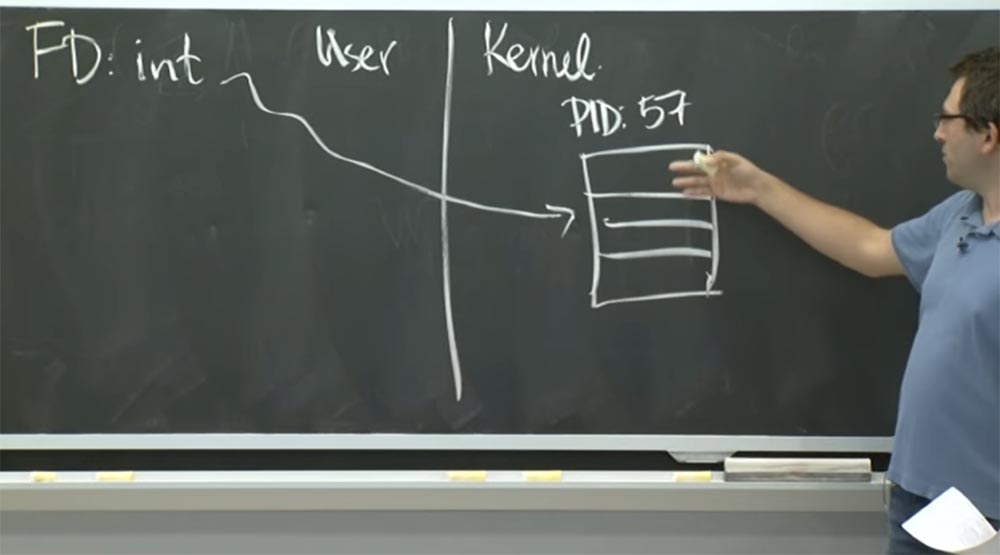 FD: int
User
Kernel.
PID: 57